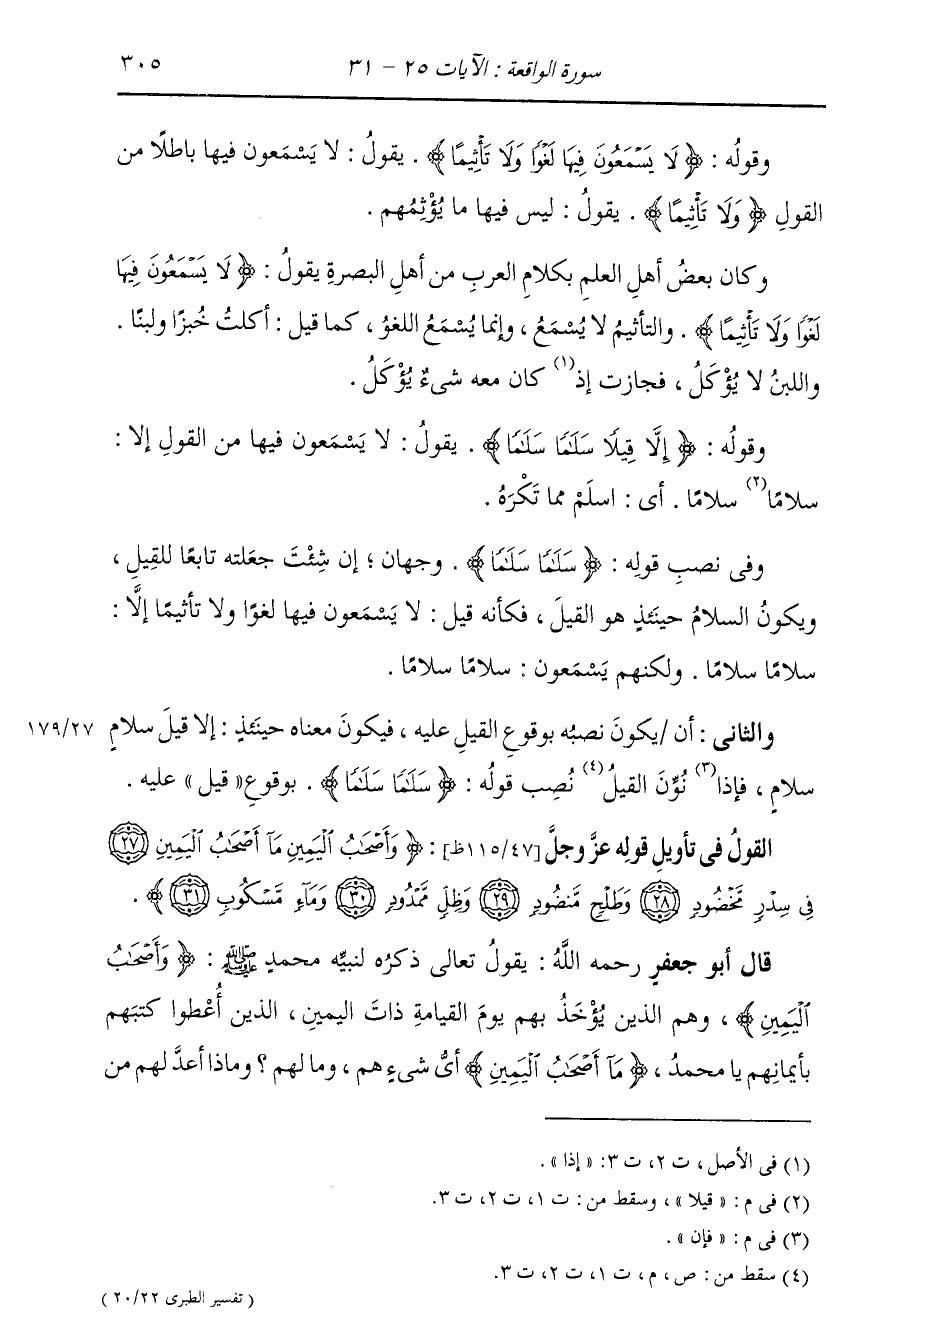 سورة الواقعة : الآيات ٢٥ - ٣١ ٣٠٥
وقولُه : ﴿ لَا يَسْمَعُونَ فِيهَا لَغْوًا وَلَا تَأْثِيمًا ﴾ . يقولُ : لا يَسْمَعون فيها باطلًا من
القولِ ﴿ وَلَا تَأْثِيمًا ﴾ . يقولُ : ليس فيها ما يُؤْثِمُهم .
وكان بعضُ أهلِ العلمِ بكلامِ العربِ من أهلِ البصرةِ يقولُ : ﴿ لَا يَسْمَعُونَ فِيهَا
لَغْوًا وَلَا تَأْثِيمًا ﴾ . والتأثيمُ لا يُسْمَعُ ، وإنما يُسْمَعُ اللغوُ ، كما قيل : أكلتُ خُبزًا ولبنًا .
واللبنُ لا يُؤْكَلُ ، فجازت إذ(١) كان معه شىءٌ يُؤْكَلُ .
وقولُه : ﴿ إِلَّا قِيلًا سَلَٰمًا سَلَٰمًا ﴾ . يقولُ : لا يَسْمَعون فيها من القولِ إلا :
سلامًا(٢) سلامًا . أى : اسلَمْ مما تَكْرَهُ .
وفى نصبِ قولِه : ﴿ سَلَٰمًا سَلَٰمًا ﴾ . وجهان ؛ إن شِئْتَ جعَلته تابعًا للقِيلِ ،
ويكونُ السلامُ حينَئذٍ هو القيلَ ، فكأنه قيل : لا يَسْمَعون فيها لغوًا ولا تأثيمًا إلَّا :
سلامًا سلامًا . ولكنهم يَسْمَعون : سلامًا سلامًا .
والثانى : أن /يكونَ نصبُه بوقوعِ القيلِ عليه ، فيكونَ معناه حينَئذٍ : إلا قيلَ سلامٍ ١٧٩/٢٧
سلامٍ ، فإذا(٣) نُوِّنَ القيلُ(٤) نُصِب قولُه : ﴿ سَلَٰمًا سَلَٰمًا ﴾ . بوقوعِ « قيل » عليه .
القولُ فى تأويلِ قولِه عزَّ وجلَّ [١١٥/٤٧ظ] : ﴿ وَأَصْحَٰبُ ٱلْيَمِينِ مَآ أَصْحَٰبُ ٱلْيَمِينِ ٢٧
فِى سِدْرٍ مَّخْضُودٍ ٢٨ وَطَلْحٍ مَّنضُودٍ ٢٩ وَظِلٍّ مَّمْدُودٍ ٣٠ وَمَآءٍ مَّسْكُوبٍ ٣١ ﴾ .
قال أبو جعفرٍ رحمه اللَّهُ : يقولُ تعالى ذكرُه لنبيِّه محمدٍ ﷺ : ﴿ وَأَصْحَٰبُ
ٱلْيَمِينِ ﴾ ، وهم الذين يُؤْخَذُ بهم يومَ القيامةِ ذاتَ اليمينِ ، الذين أُعْطوا كتبَهم
بأيمانِهم يا محمدُ ، ﴿ مَآ أَصْحَٰبُ ٱلْيَمِينِ ﴾ أىُّ شىءٍ هم ، وما لهم ؟ وماذا أعدَّ لهم من
(١) فى الأصل ، ت ٢، ت ٣: « إذا » .
(٢) فى م : « قيلا » ، وسقط من : ت ١، ت ٢، ت ٣.
(٣) فى م : « فإن » .
(٤) سقط من : ص ، م ، ت ١، ت ٢، ت ٣.
( تفسير الطبرى ٢٠/٢٢ )